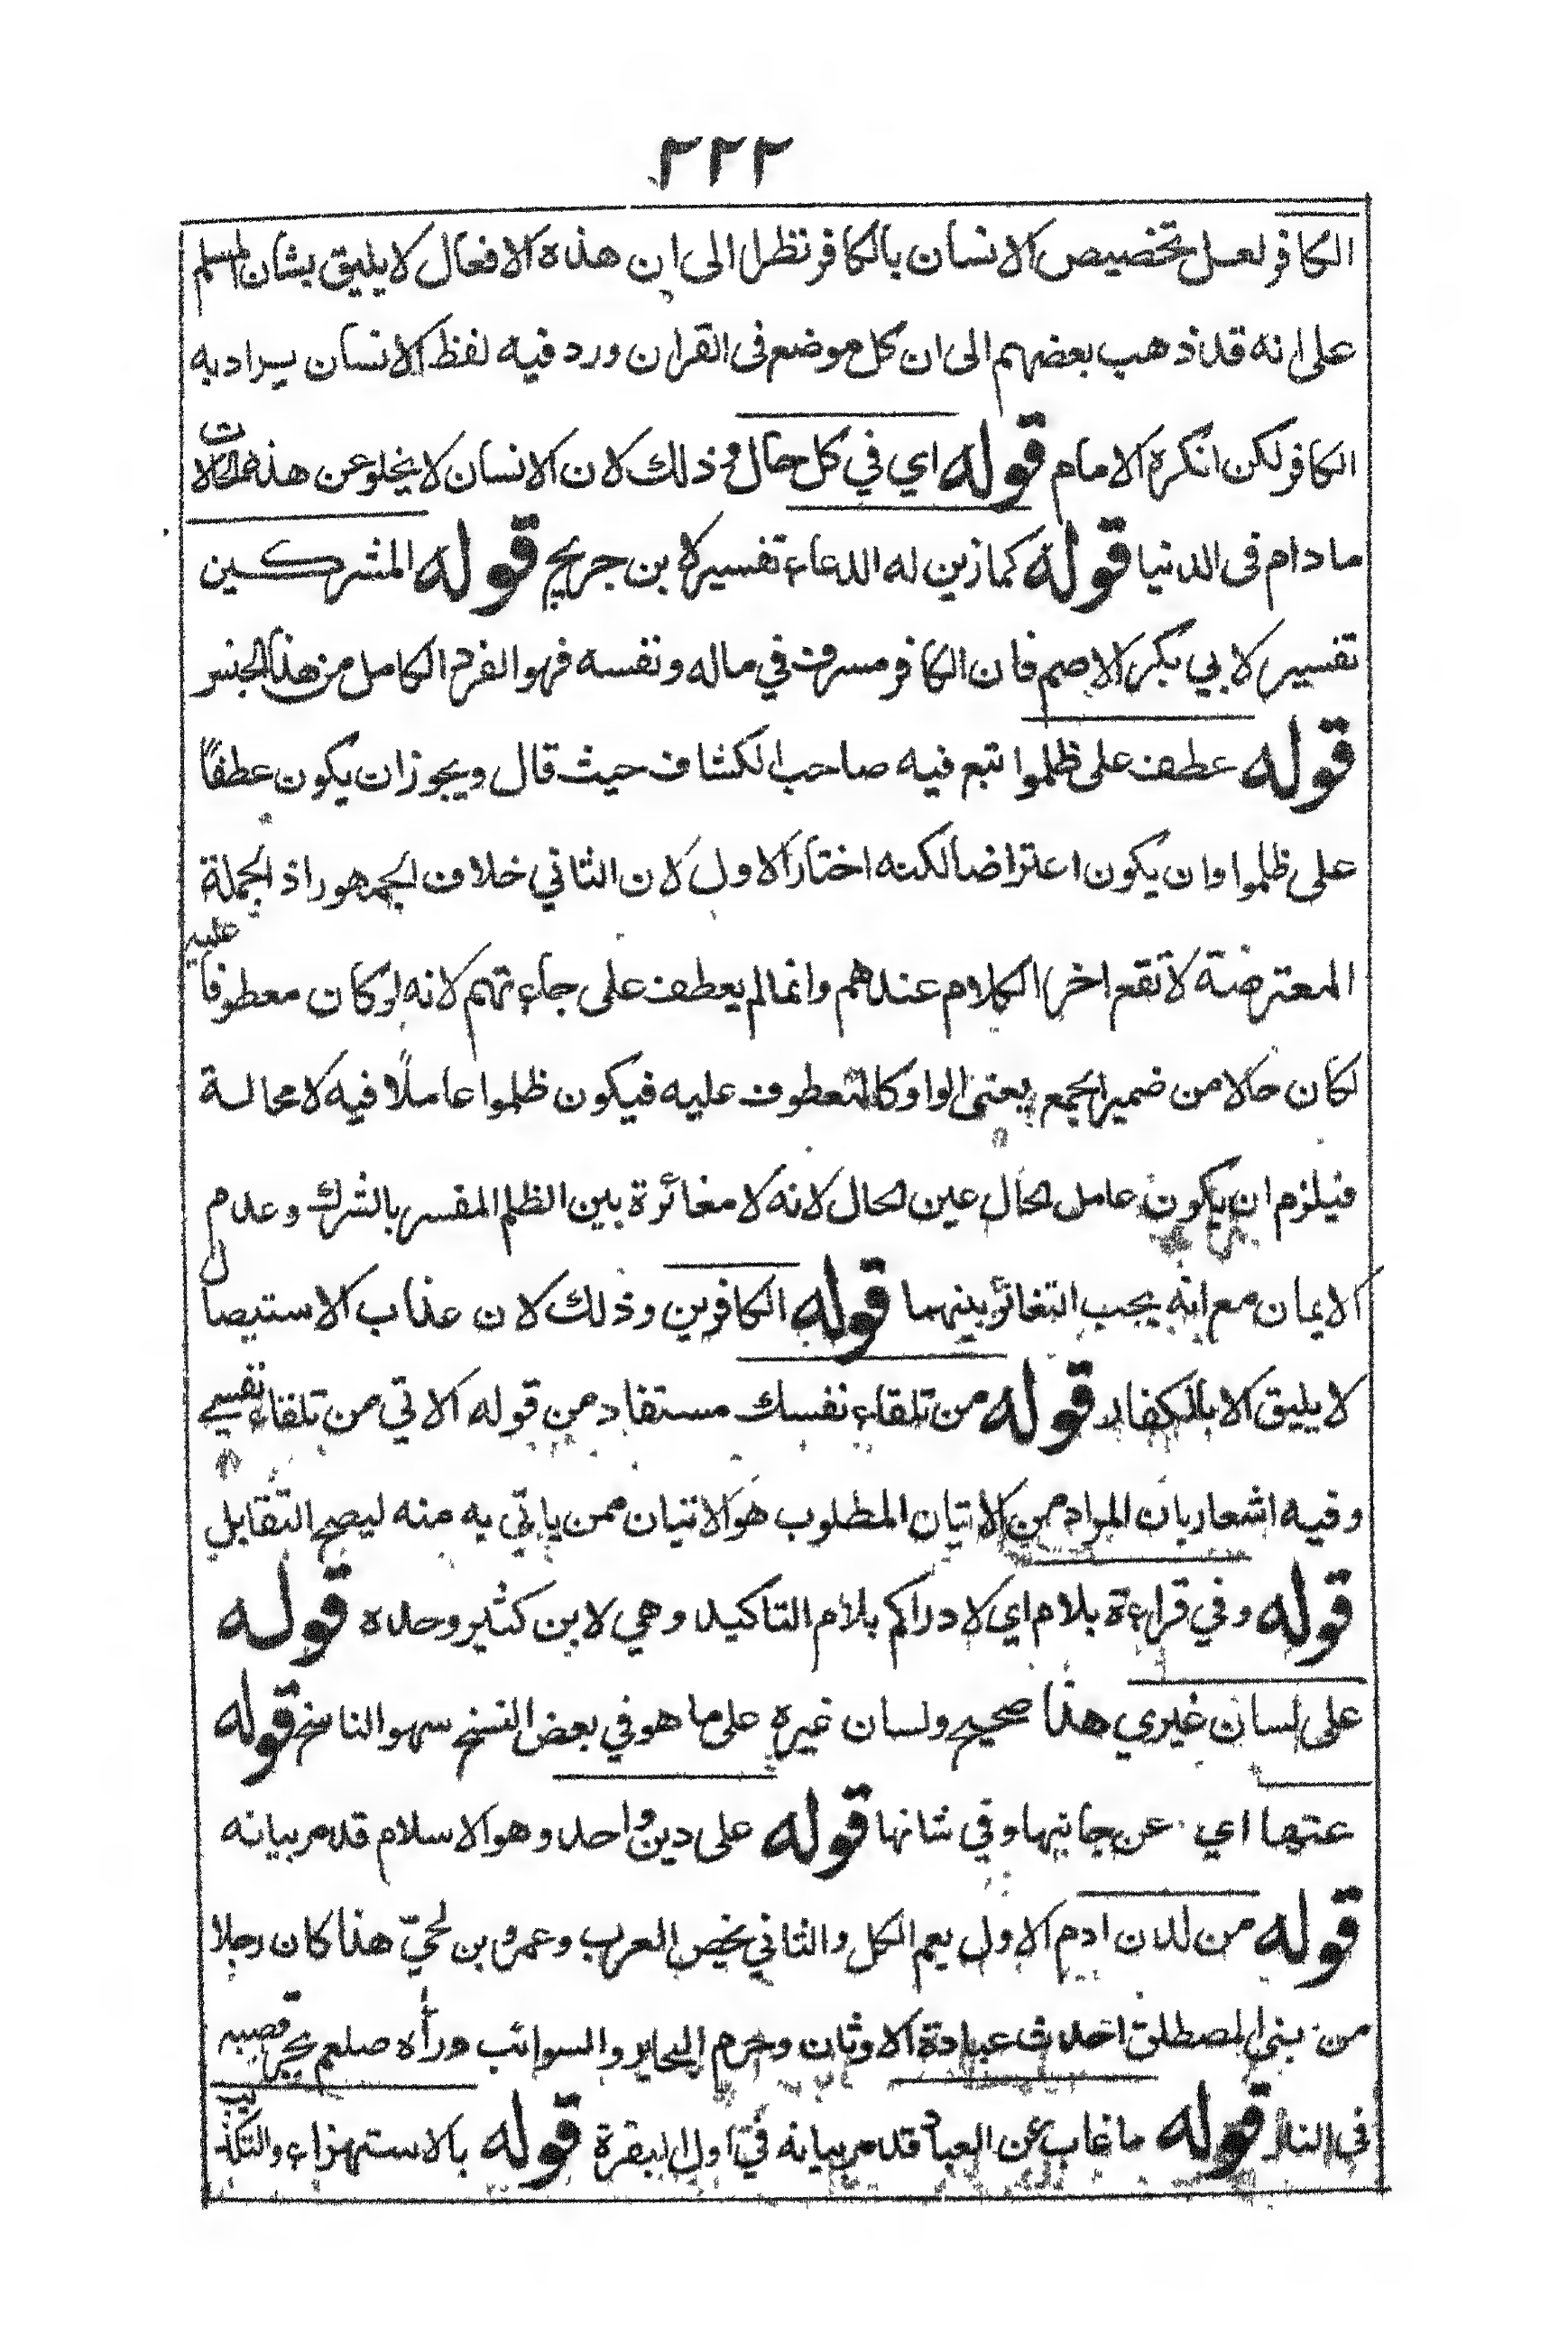 ٢٢٢
الكافر لعل تخصيص الانسان بالكافر نظرا الى ان هذه الافعال لا يليق بشان المسلم
على انه قد ذهب بعضهم الى ان كل موضع فى القران ورد فيه لفظ الانسان يراد به
الكافر لكن انكره الامام قوله اي في كل حال وذلك لان الانسان لا يخلو عن هذه الحالات
ما دام فى الدنيا قوله كما زين له الدعاء تفسير لابن جريج قوله المشركين
تفسير لابي بكر الاصم فان الكافر مسرف في ماله ونفسه فهو الفرد الكامل من هذا الجنس
قوله عطف على ظلموا تبع فيه صاحب الكشاف حيث قال ويجوز ان يكون عطفاً
على ظلموا وان يكون اعتراضا لكنه اختار الاول لان الثاني خلاف الجمهور اذ الجملة
المعترضة لا تقع اخر الكلام عندهم وانما لم يعطف على جاءتهم لانه لو كان معطوفا عليه
لكان حالا من ضمير الجمع يعنى الواو كالمعطوف عليه فيكون ظلموا عاملاً فيه لا محالة
فيلزم ان يكون عامل الحال عين الحال لانه لا مغائرة بين الظلم المفسر بالشرك وعدم
الايمان مع انه يجب التغائر بينهما قوله الكافرين وذلك لان عذاب الاستيصال
لا يليق الا بالكفار قوله من تلقاء نفسك مستفاد من قوله الاتي من تلقاء نفسي
وفيه اشعار بان المراد من الاتيان المطلوب هو الاتيان ممن ياتي به منه ليصح التقابل
قوله وفي قراءة بلام اي لادراكم بلام التاكيد وهي لابن كثير وحده قوله
على لسان غيري هذا صحيح ولسان غيره على ما هو في بعض النسخ سهو الناسخ قوله
عنها اي عن جانبها وفي شانها قوله على دين واحد وهو الاسلام قد مر بيانه
قوله من لدن ادم الاول يعم الكل والثاني يخص العرب وعمرو بن لحيّ هذا كان رجلا
من بنى المصطلق احدث عبادة الاوثان وحرم البحاير والسوائب وراٰه صلعم يجر قصبه
فى النار قوله ما غاب عن العباد قد مر بيانه في اول البقرة قوله بالاستهزاء والتكذيب